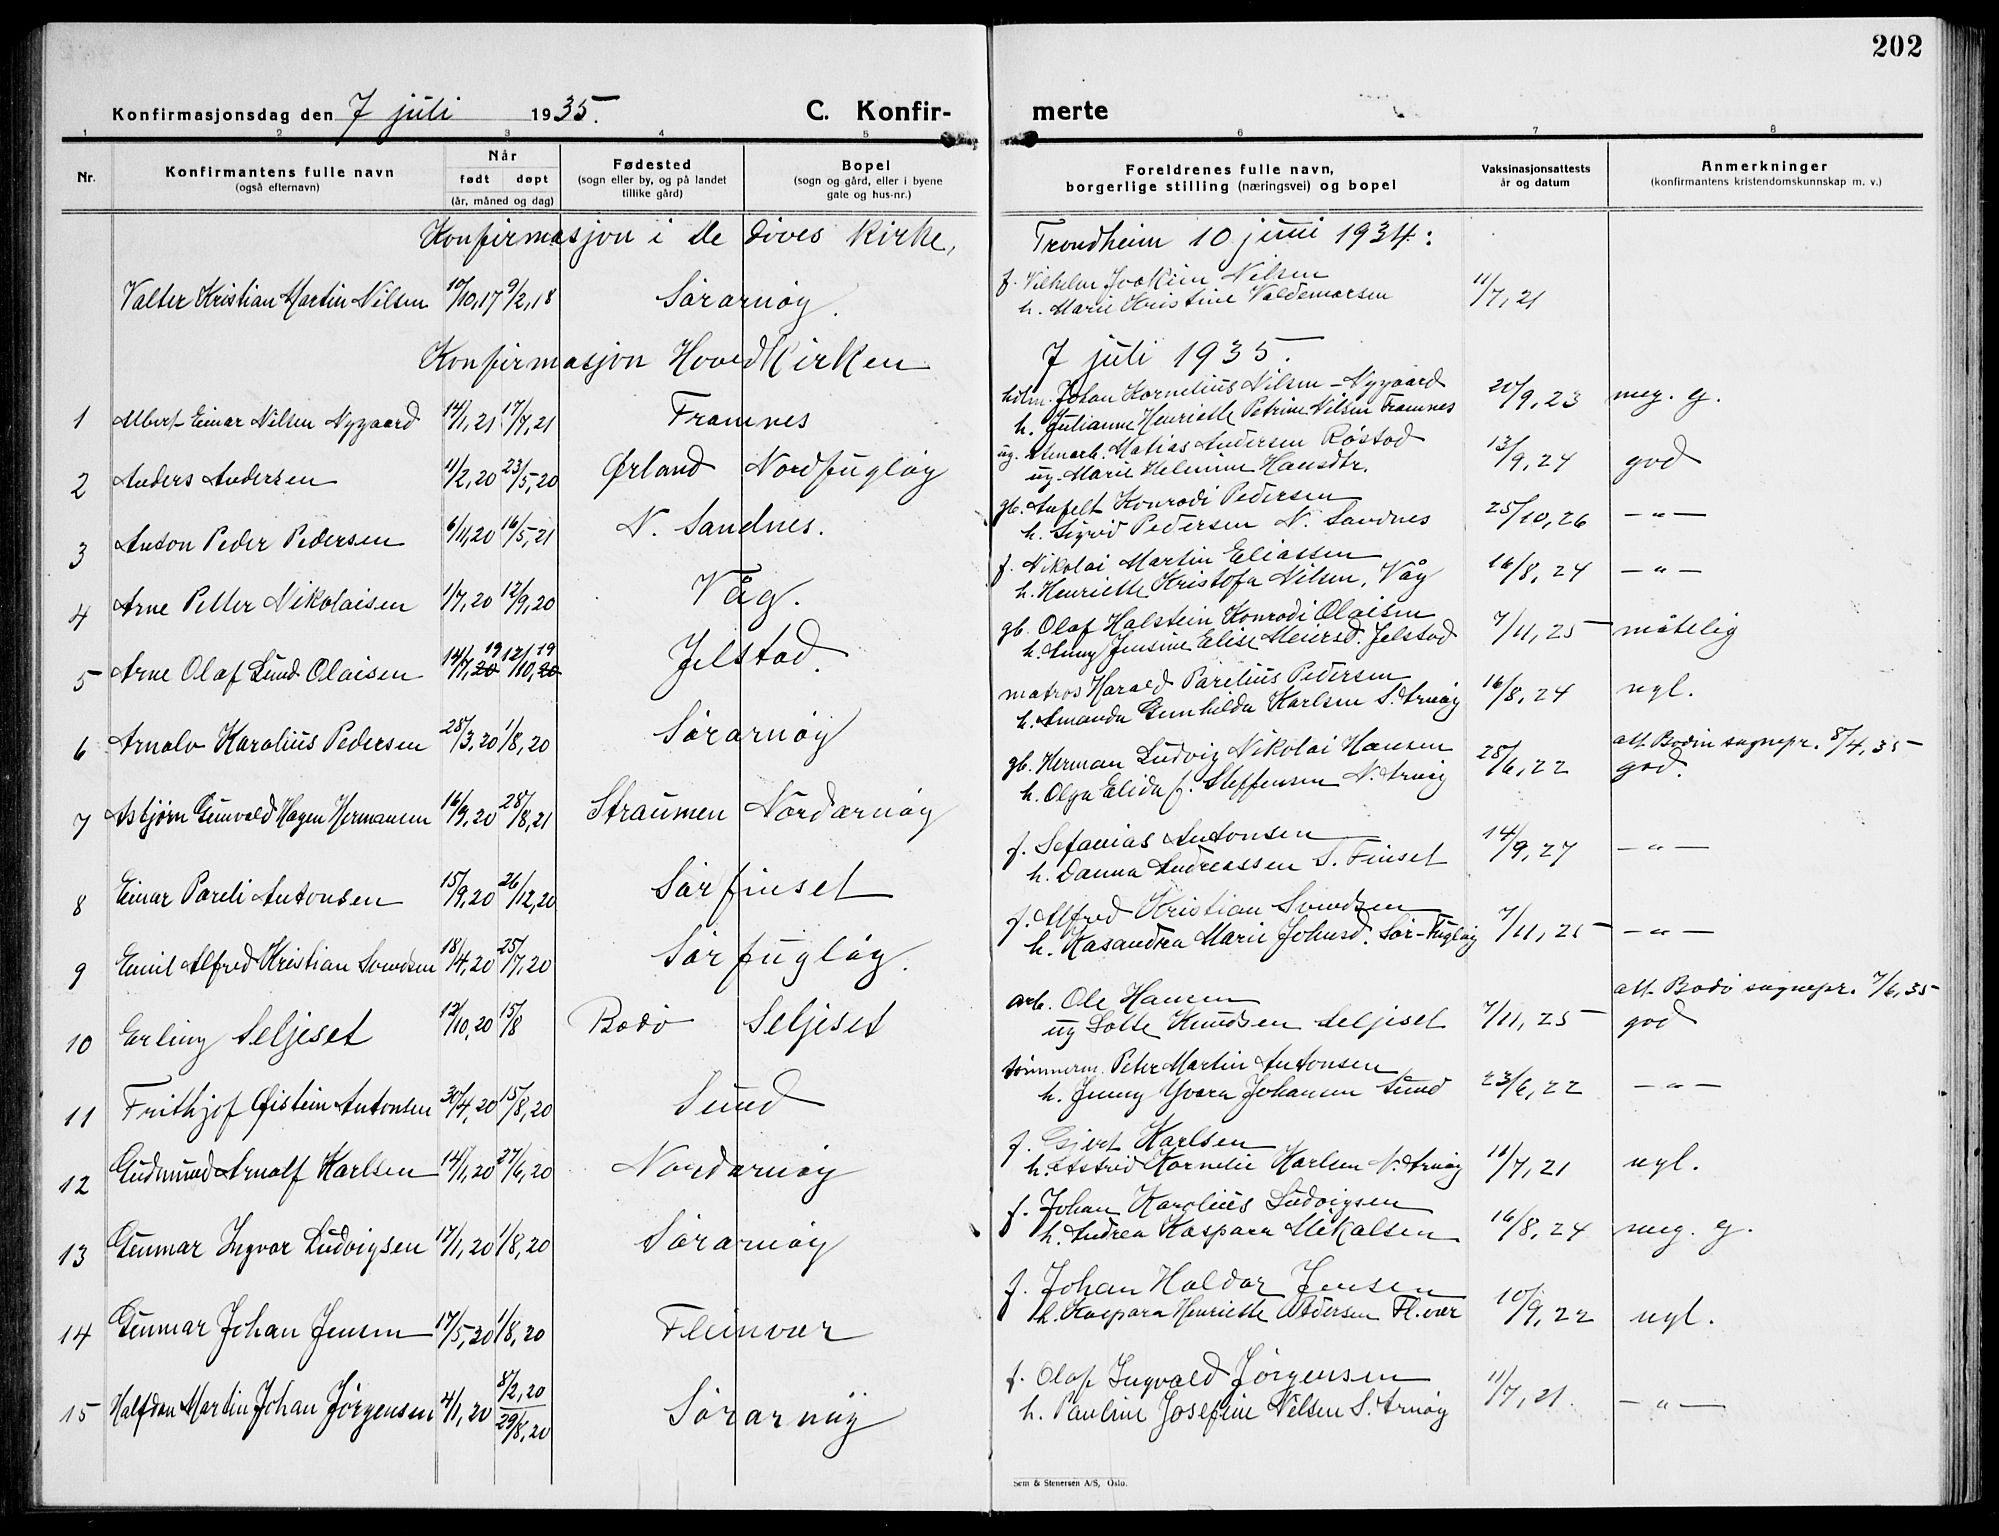 202
Konfirmasjonsdag den 7 juli 1935. C. Konfir- merte
1 2 3 4 5 6 7 8
Nr. Konfirmantens fulle navn (også efternavn) Når født døpt (år, måned og dag) Fødested (sogn eller by, og på landet tillike gård) Bopel (sogn og gård, eller i byene gate og hus-nr.) Foreldrenes fulle navn, borgerlige stilling (næringsvei) og bopel Vaksinasjonsattests år og datum Anmerkninger (konfirmantens kristendomskunnskap m. v.)
Konfirmasjon i de døves kirke, Trondheim 10 juni 1934:
Valter Kristian Martin Nilsen 10/10,17 9/2,18 Sørarnøy. f. Vilhelm Joakim Nilsen 11/7,21
h. Marie Kristine Valdemarsen
Konfirmasjon Hovedkirken 7 juli 1935.
1 Albert Einar Nilsen Nygaard 14/1,21 17/7,21 Framnes Johan Kornelius Nilsen-Nygaard 20/9,23 meg. g.
h. Julianne Henriette Petrine Nilsen Framnes
2 Anders Andersen 11/2,20 23/5,20 Ørland Nordfugløy ug. Matias Andersen Røstad 13/9,24 god
ug. Marie Helmine Hansdtr.
3 Anton Peder Pedersen 6/11,20 16/5,21 N. Sandnes. gb. Anfelt Konradi Pedersen 25/10,26 -"-
h. Sigrid Pedersen N. Sandnes
4 Arne Petter Nikolaisen 1/7,20 12/9,20 Våg. f. Nikolai Martin Eliassen 16/8,24 -"-
h. Henriette Kristofa Nilsen, Våg
5 Arne Olaf Lund Olaisen 14/7,20 19 12/10,20 19 Jelstad. gb. Olaf Halstein Konradi Olaisen 7/11,25 måtelig
h. Anny Jensine Elise Meiersd. Jelstad
6 Arnolv Karolius Pedersen 28/3,20 1/8,20 Sørarnøy matros Harald Parelius Pedersen 16/8,24 ngl.
h. Amanda Gunhilda Karlsen S. Arnøy
7 Asbjørn Gunvald Hagen Hermansen 16/9,20 28/8,21 Straumen Nordarnøy gb. Herman Ludvig Nikolai Hansen 28/6,22 att. Bodin sognepr. 8/4,35
h. Olga Elida f. Steffensen N. Arnøy god.
8 Einar Pareli Antonsen 15/9,20 26/12,20 Sørfinset f. Sefanias Antonsen 14/9,27 -"-
h. Danna Andreassen S. Finset
9 Emil Alfred Kristian Svendsen 18/4,20 25/7,20 Sørfugløy. f. Alfred Kristian Svendsen 7/11,25 -"-
h. Kasandra Marie Johnsd. Sør-Fugløy
10 Erling Seljeset 12/10,20 15/8 Bodø Seljeset arb. Ole Hansen 7/11,25 att. Bodø sognepr. 7/6,35
ug Lotte Knudsen Seljeset god
11 Frithjof Øistein Antonsen 30/4,20 15/8,20 Sund tømmerm. Peter Martin Antonsen 23/6,22 -"-
h. Jenny Yvara Johansen Sund
12 Gudmund Arnolf Karlsen 14/1,20 27/6,20 Nordarnøy f. Gjert Karlsen 11/7,21 ngl.
h. Astrid Kornelie Karlsen N. Arnøy
13 Gunnar Ingvar Ludvigsen 17/1,20 1/8,20 Sørarnøy f. Johan Karolius Ludvigsen 16/8,24 meg. g.
h. Andrea Kaspara Mikalsen
14 Gunnar Johan Jensen 17/5,20 1/8,20 Fleinvær f. Johan Haldor Jensen 10/9,22 ngl.
h. Kaspara Henriette Pedersen Fl.vær
15 Halfdan Martin Johan Jørgensen 4/1,20 8/2,20 29/8,20 Sørarnøy f. Olaf Ingvald Jørgensen 11/7,21. -"-
h. Pauline Josefine Nilsen S. Arnøy
Sem & Stenersen A/S, Oslo.